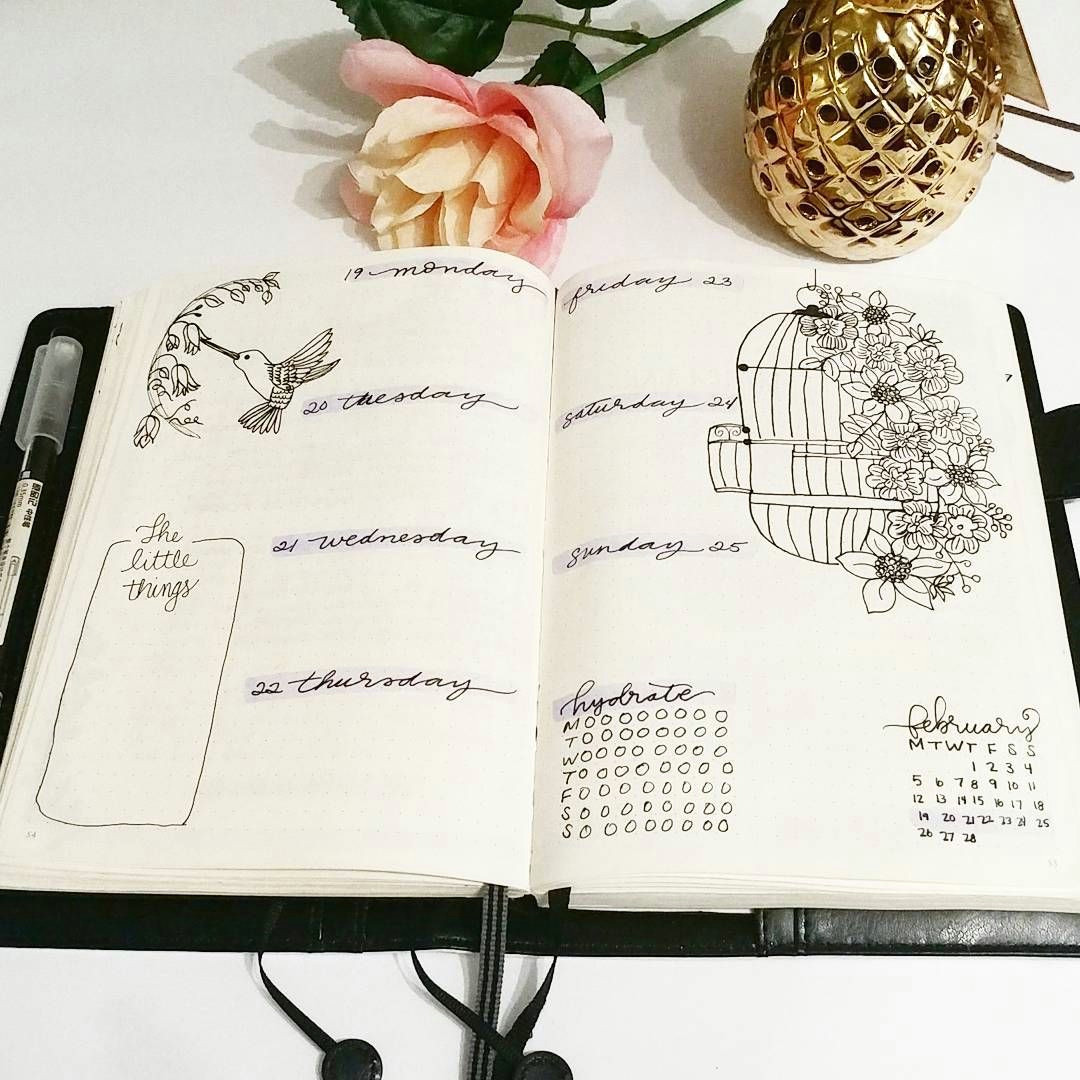 19 monday
20 tuesday
21 wednesday
22 thursday
The
little
things
54
friday 23
saturday 24
sunday 25
hydrate
M
T
W
T
F
S
S
february
M T W T F S S
1 2 3 4
5 6 7 8 9 10 11
12 13 14 15 16 17 18
19 20 21 22 23 24 25
26 27 28
0.35mm